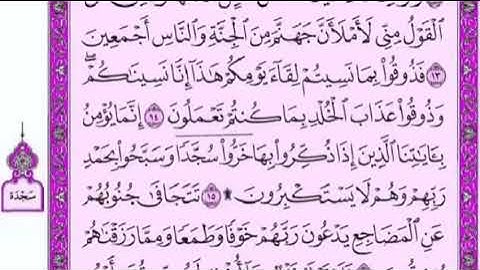 ٱلْقَوْلُ مِنِّى لَأَمْلَأَنَّ جَهَنَّمَ مِنَ ٱلْجِنَّةِ وَٱلنَّاسِ أَجْمَعِينَ
١٣ فَذُوقُوا۟ بِمَا نَسِيتُمْ لِقَآءَ يَوْمِكُمْ هَٰذَآ إِنَّا نَسِينَٰكُمْ ۖ
وَذُوقُوا۟ عَذَابَ ٱلْخُلْدِ بِمَا كُنتُمْ تَعْمَلُونَ ١٤ إِنَّمَا يُؤْمِنُ
بِـَٔايَٰتِنَا ٱلَّذِينَ إِذَا ذُكِّرُوا۟ بِهَا خَرُّوا۟ سُجَّدًا وَسَبَّحُوا۟ بِحَمْدِ
رَبِّهِمْ وَهُمْ لَا يَسْتَكْبِرُونَ ۩ ١٥ تَتَجَافَىٰ جُنُوبُهُمْ
سَجْدَة
عَنِ ٱلْمَضَاجِعِ يَدْعُونَ رَبَّهُمْ خَوْفًا وَطَمَعًا وَمِمَّا رَزَقْنَٰهُمْ